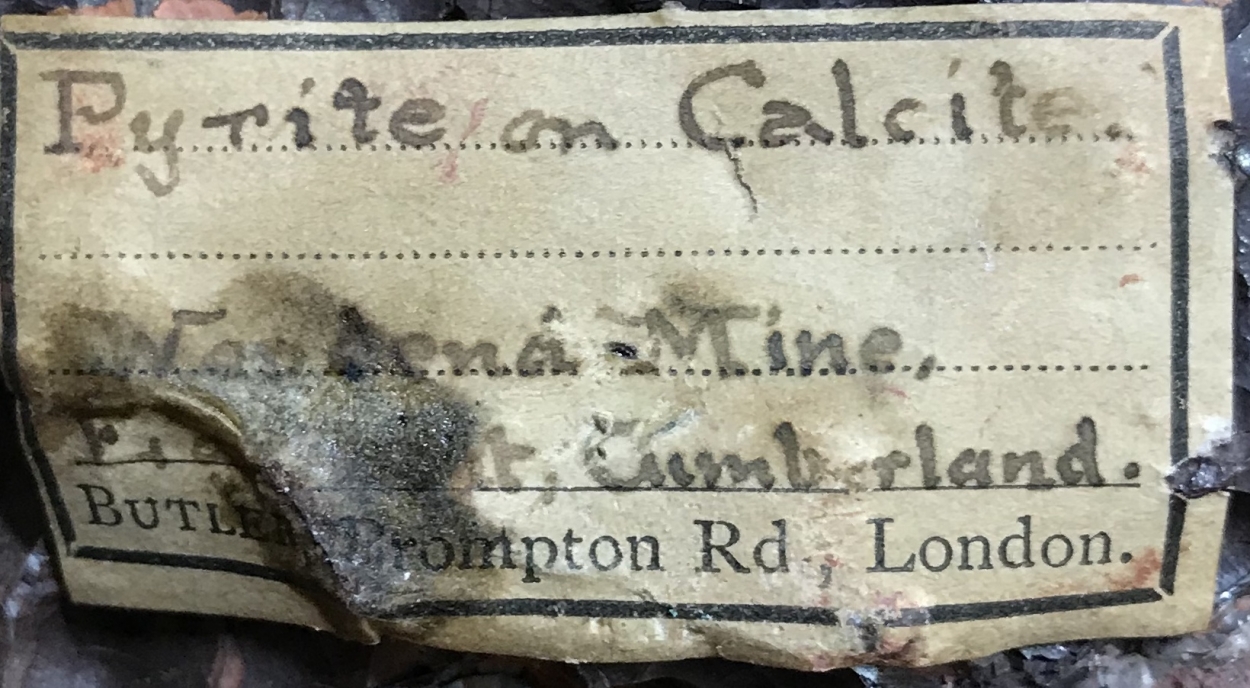 Pyrite on Calcite.
Mine,
Cumberland.
BUTLER Brompton Rd, London.